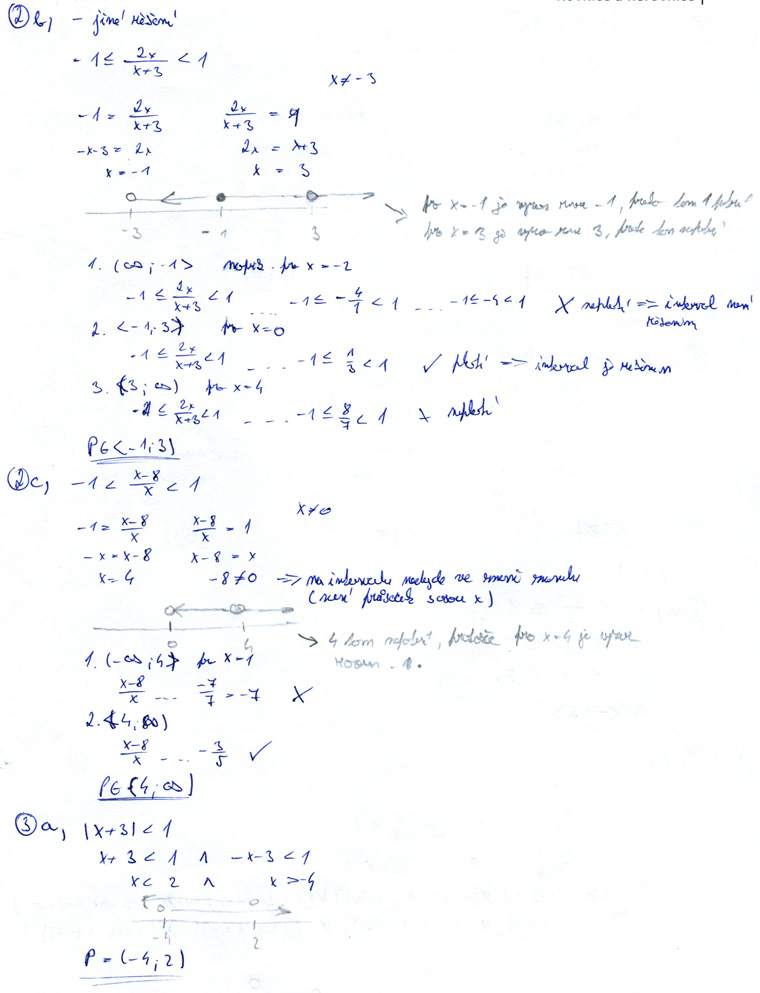 ② b, - jiné řešení
-1 ≤ 2x/x+3 < 1
x ≠ -3
-1 = 2x/x+3    2x/x+3 = 1
-x-3 = 2x    2x = x+3
x = -1    x = 3
-3    -1    3
pro x=-1 je výraz roven -1, proto tam 1 patří
pro x=3 je výraz roven 3, proto tam nepatří
1. (∞; -1> např. pro x = -2
-1 ≤ 2x/x+3 < 1 .... -1 ≤ -4/1 < 1 ... -1 ≤ -4 < 1 X neplatí => interval není řešením
2. <-1; 3) pro x=0
-1 ≤ 2x/x+3 < 1 .... -1 ≤ 1/3 < 1 ✓ platí => interval je řešením
3. (3; ∞) pro x=4
-1 ≤ 2x/x+3 < 1 .... -1 ≤ 8/7 < 1 X neplatí
P∈<-1; 3)
② c, -1 < x-8/x < 1
x ≠ 0
-1 = x-8/x    x-8/x = 1
-x = x-8    x-8 = x
x = 4    -8 ≠ 0 => na intervalu ve smyslu
(není průsečík s osou x)
0    4
4 tam nepatří, protože pro x=4 je výraz roven -1.
1. (-∞; 4) pr x=1
x-8/x .... -7/7 = -7 X
2. (4; ∞)
x-8/x .... -3/5 ✓
P∈(4; ∞)
③ a, |x+3| < 1
x+3 < 1 ∧ -x-3 < 1
x < 2 ∧ x > -4
-4    2
P = (-4; 2)